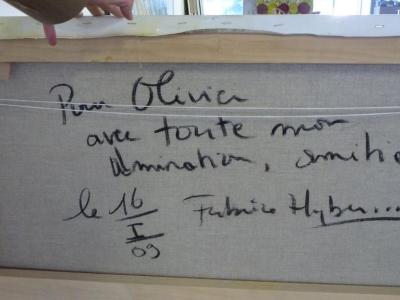 Pour Olivier
avec toute mon
admiration, amitié
le 16 Fabrice Hyber....
I
09